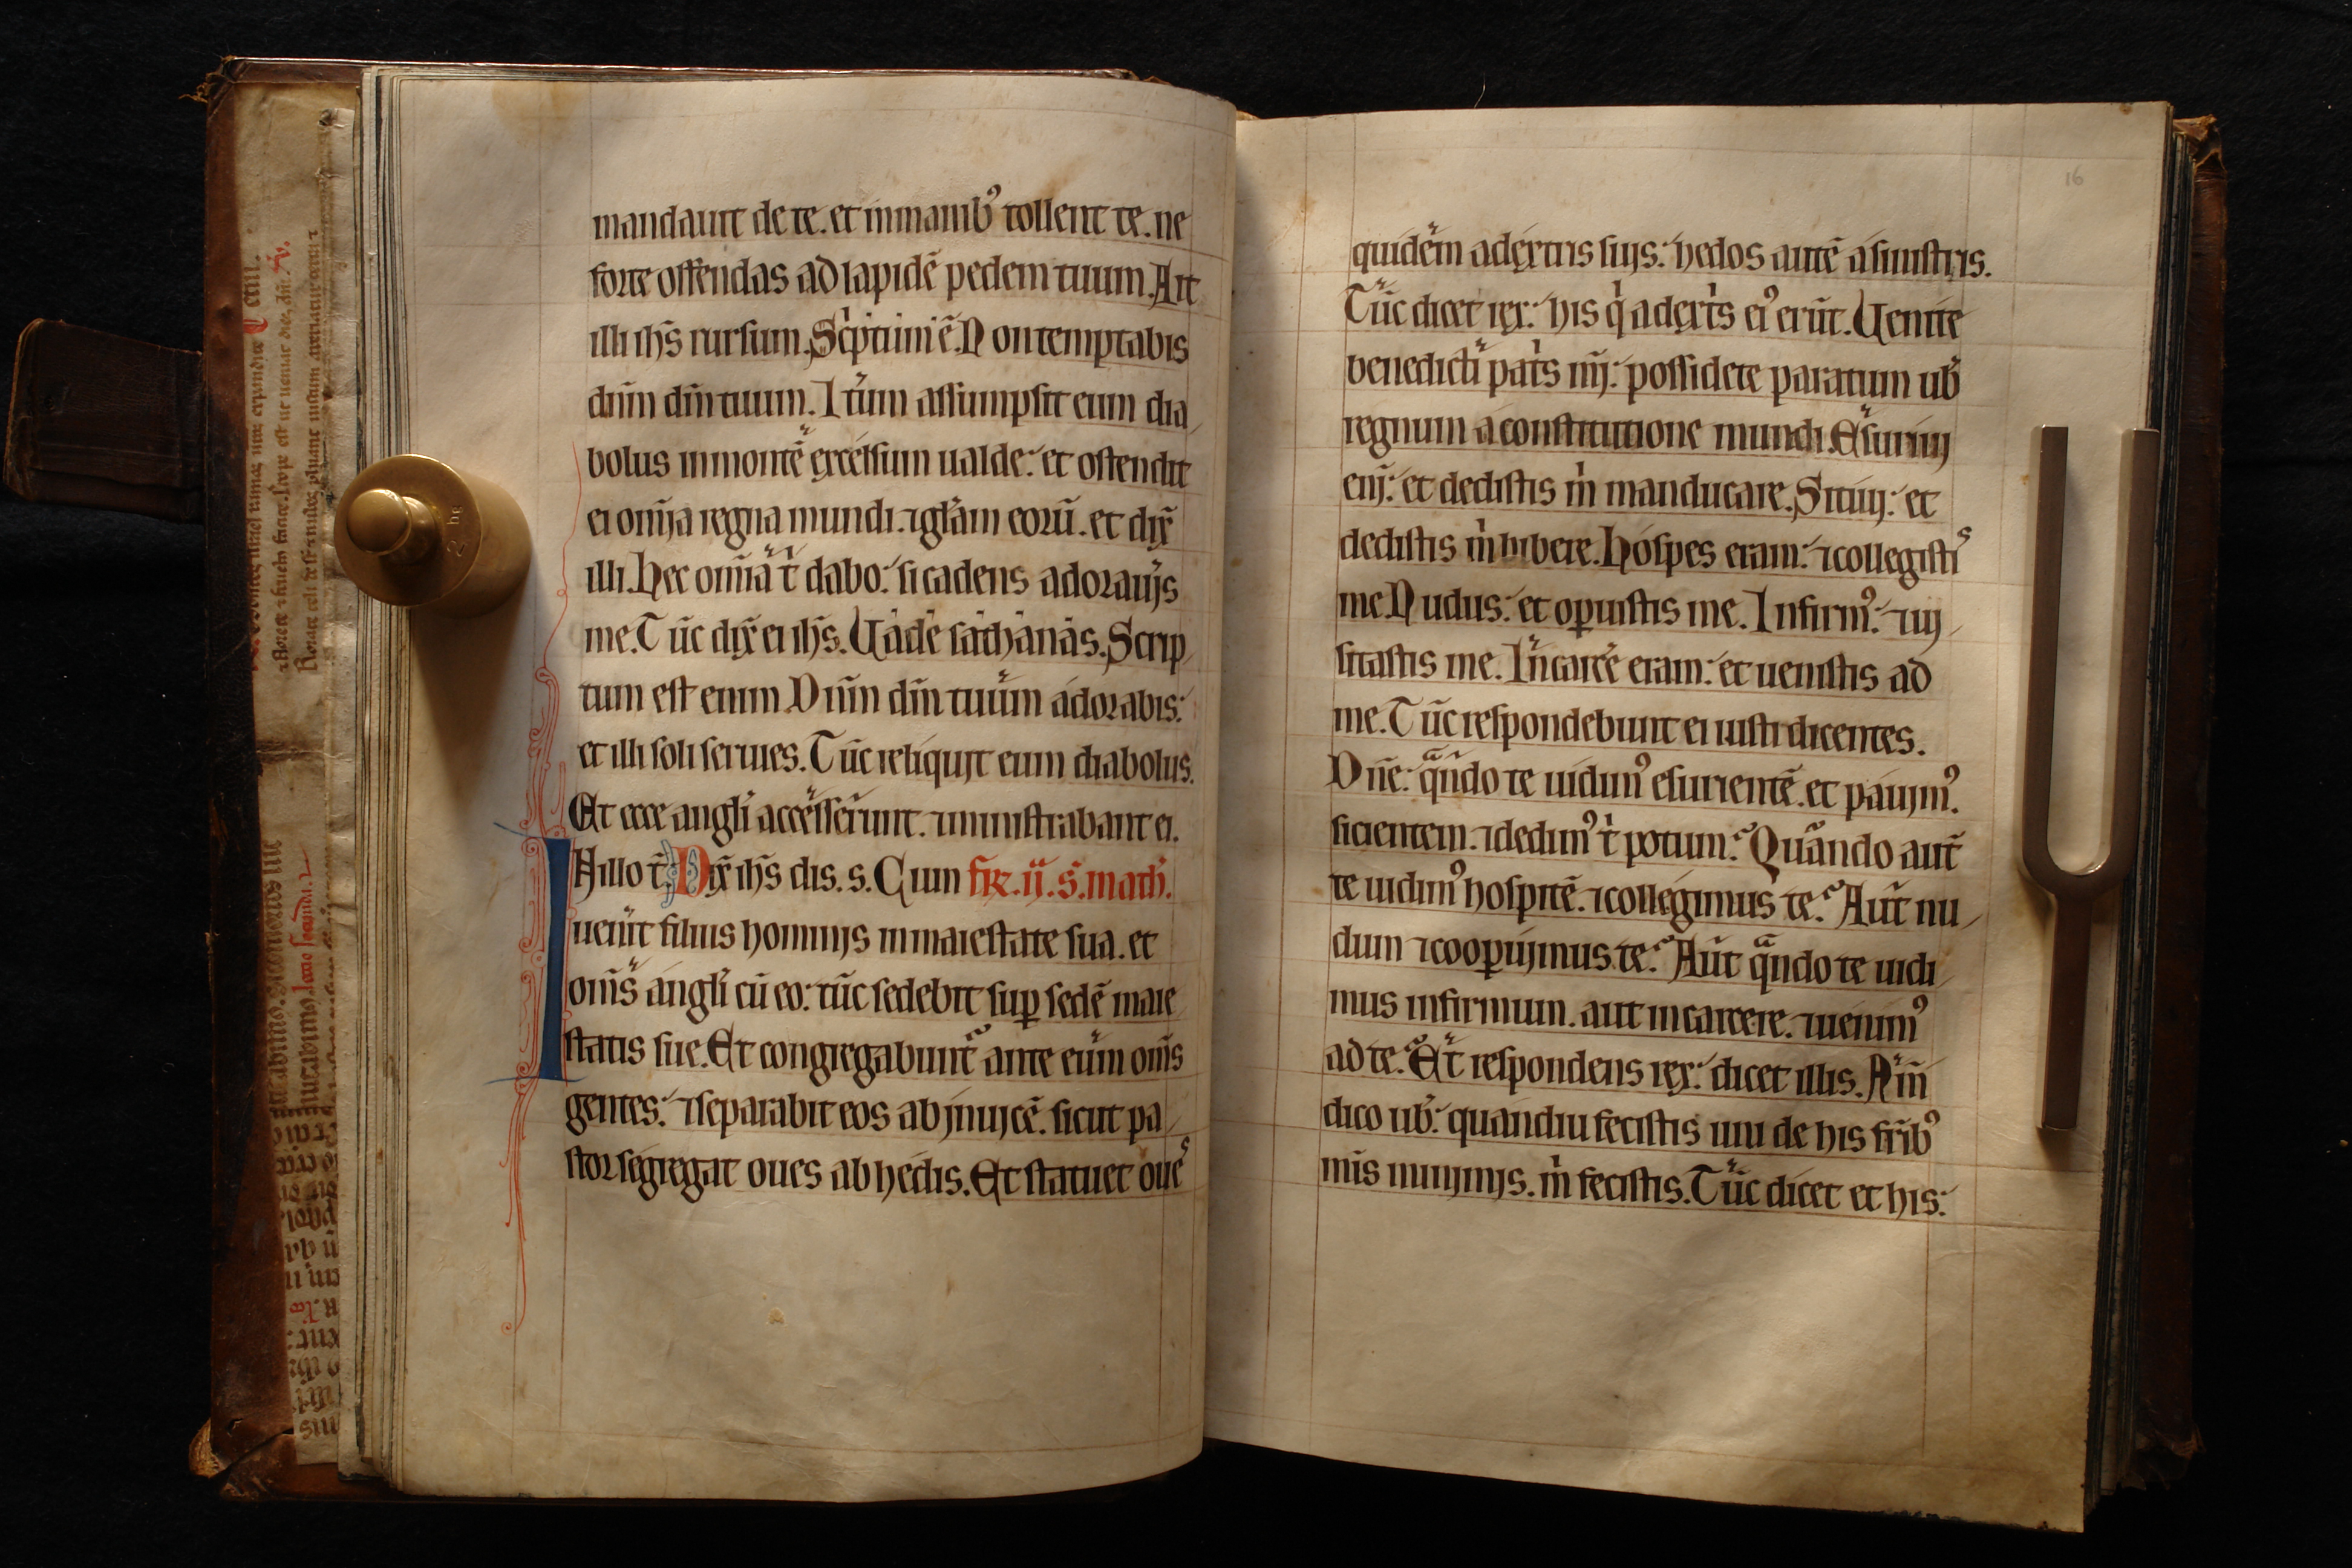 mandauit de te. et inmanib᾽ tollent te. ne
forte offendas ad lapidē pedem tuum. Ait
illi ih̄s rursum. Sc̓ptum ē. Non temptabis
dn̄m dn̄ tuum. Itūm assumpsit eum dia
bolus inmontē excelsum ualde: et ostendit
ei om̄ia regna mundi. ⁊ gl̄am eorū. et dix̄
illi. Hec om̄ia t̓ dabo: si cadens adorauijs
me. Tūc dix̄ ei ih̄s. Uade sathanas. Scrip
tum est enim Dn̄m dn̄ tuum adorabis:
et illi soli seruies. Tūc reliquit eum diabolus.
Et ecce angl̓i accesser̄unt. ⁊ ministrabant ei.
In illo t̄. Dix̄ ih̄s dis. s. Cum fr̄. ij. s̄. math̓.
uen̄it filius hominis in maiestate sua. et
om̄s angl̓i cū eo: tūc sedebit sup̱ sedē maie
statis sue. Et congregabunt᷑ ante eum om̄s
gentes: ⁊ separabit eos ab inuicē. sicut pa
stor segregat oues ab hedis. Et statuet oues
16
quidēm a dextris suijs: hedos autē a sinistris.
Tūc dicet rex: his q̓ a dext̓s ei᾽ erūt. Uenite
benedicti pat̓s mij: possidete paratum ub̓
regnum a constitutione mundi. Esuriui
enj̄: et dedistis m̓ manducare. Sitiuj: et
dedistis m̓ bibere. Hospes eram: ⁊ collegistis
me. Nudus: et op̱uistis me. Infirm᾽: ⁊ uj
sitastis me. In carc̄e eram: et uenistis ad
me. Tūc respondebunt ei iusti dicentes.
Dn̄e: qn̄do te uidim᾽ esurientē. et pauim᾽.
sicientem. ⁊ dedim᾽ t̓ potum? Quando aut̄
te uidim᾽ hospitē. ⁊ collegimus te? Aut̄ nu
dum ⁊ coop̱uimus te? Aut̄ qn̄do te uidi
mus infirmum. aut in carcere. ⁊ uenim᾽
ad te? Et respondens rex: dicet illis. Am̄
dico ub̓: quandiu fecistis uni de his fr̄ib᾽
mīs minimis. m̓ fecistis. Tūc dicet et his: